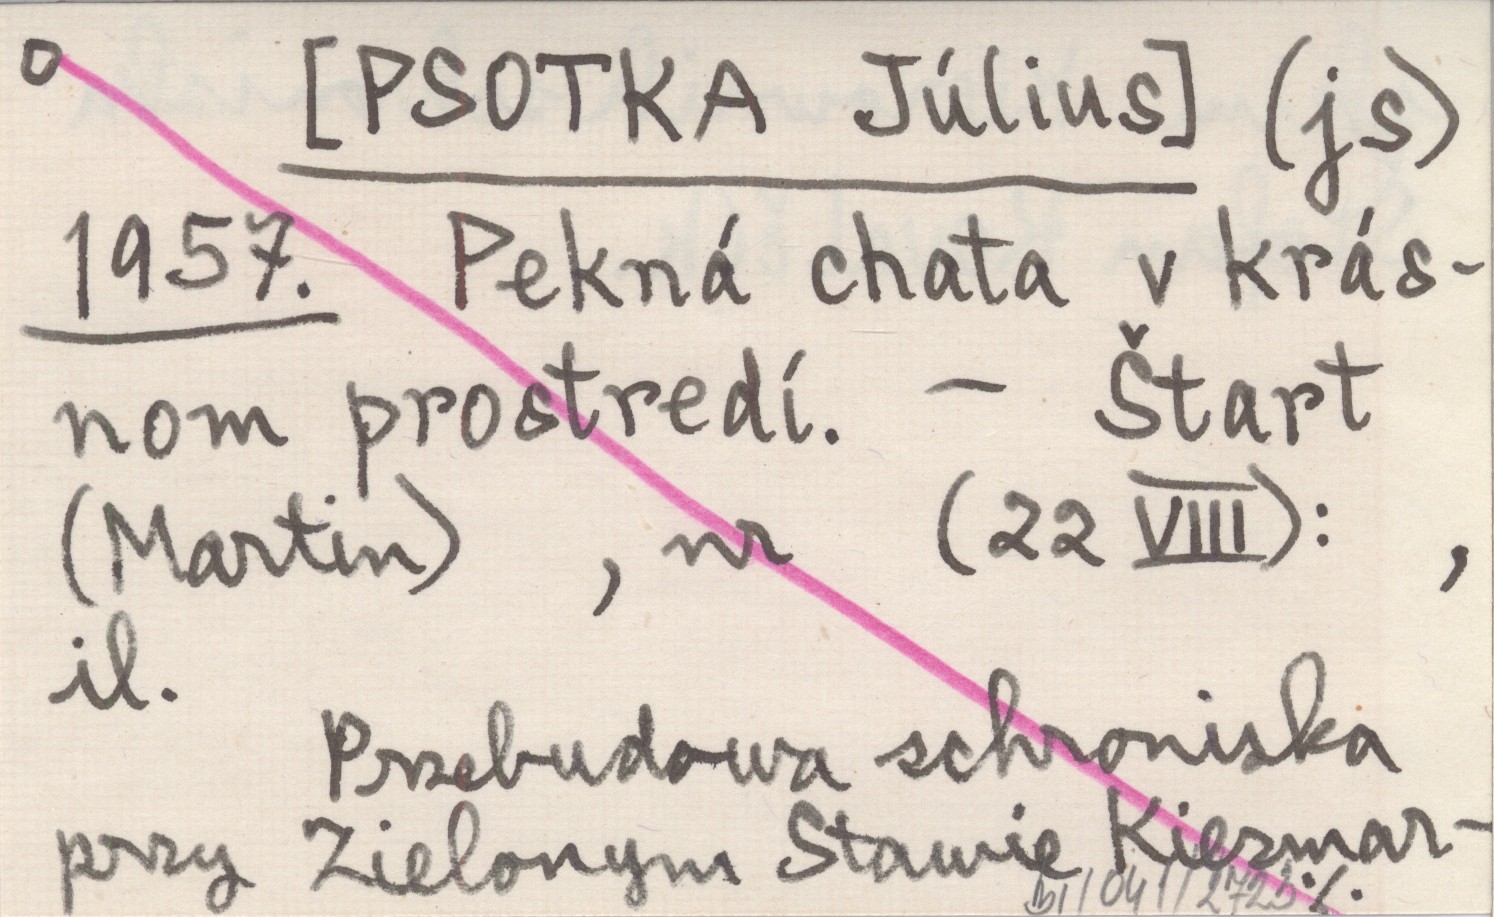 o [PSOTKA Július] (js)
1957. Pekná chata v krás-
nom prostredí. – Štart
(Martin) , nr (22 VIII): ,
il.
Przebudowa schroniska
przy Zielonym Stawie Kiezmar-
BI/041/2723 ./.